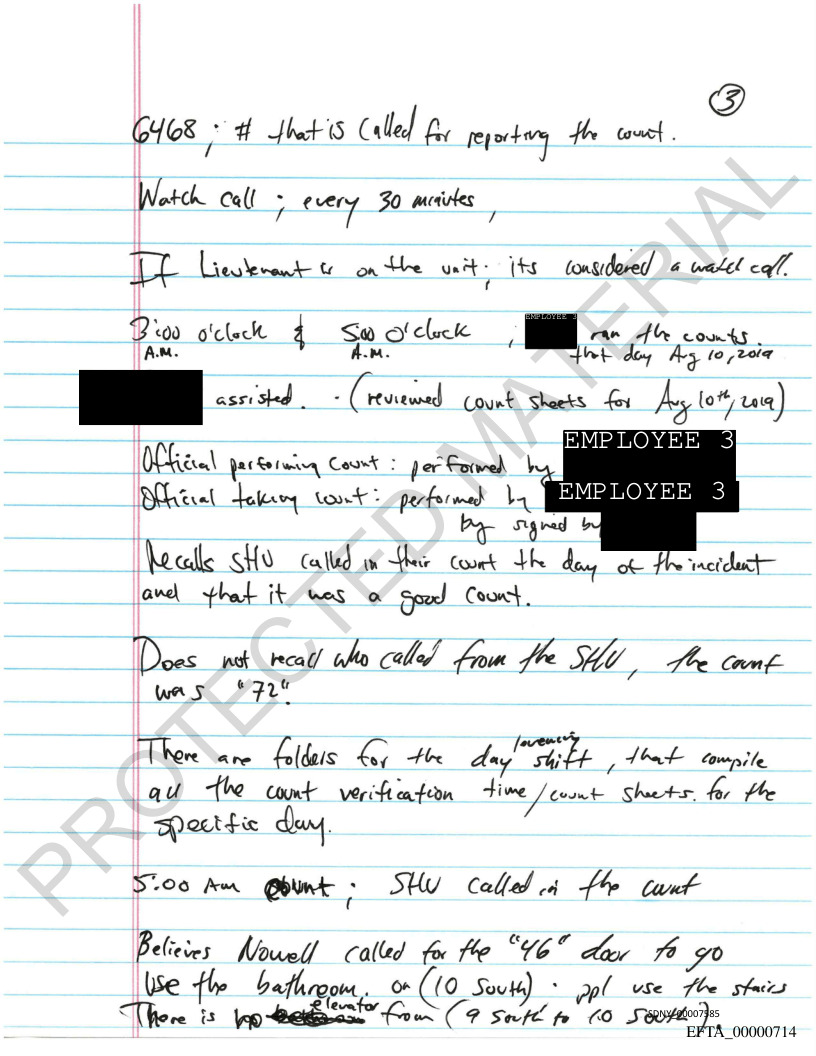 3
6468 ; # that is called for reporting the count.
Watch call ; every 30 minutes,
If Lieutenant is on the unit; its considered a watch call.
EMPLOYEE 3
3:00 o'clock & 5:00 o'clock ; ran the counts.
A.M. A.M. that day Aug 10, 2019
assisted. · (reviewed count sheets for Aug 10th, 2019)
EMPLOYEE 3
Official performing count : performed by
Official taking count : performed by EMPLOYEE 3
by signed by
Recalls SHU called in their count the day of the incident
and that it was a good count.
Does not recall who called from the SHU, the count
was "72".
There are folders for the day/evening shift, that compile
all the count verification time/count sheets. for the
specific day.
5:00 Am count ; SHU called in the count
Believes Nowell called for the "46" door to go
use the bathroom. on (10 South) · ppl use the stairs
There is no elevator from (9 South to 10 South).
SDNY_00007585
EFTA_00000714
PROTECTED MATERIAL